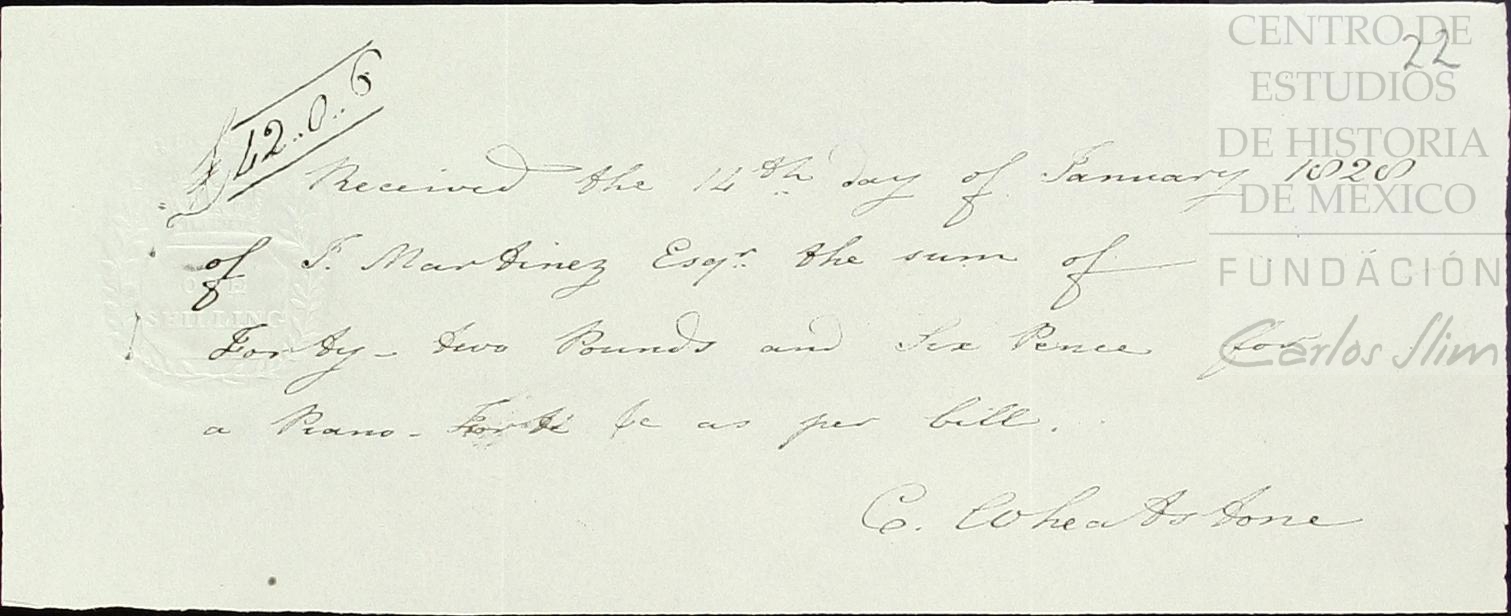 22
£42..0..6
Received the 14th day of January 1828
of F. Martinez Esqr. the sum of
Forty-two Pounds and Six Pence for
a Piano-Forte &c as per bill.
C. Wheatstone
ONE
SHILLING
CENTRO DE
ESTUDIOS
DE HISTORIA
DE MÉXICO
FUNDACIÓN
Carlos Slim